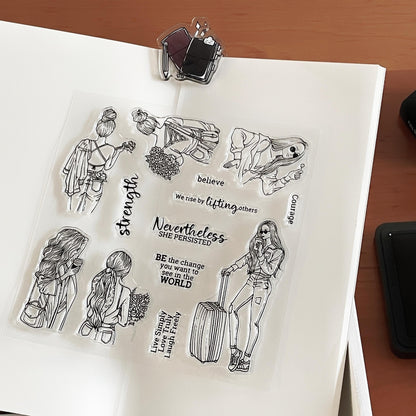 believe
We rise by lifting others
Courage
strength
Nevertheless
SHE PERSISTED
BE the change
you want to
see in the
WORLD
Live Simply
Love Truly
Laugh Freely